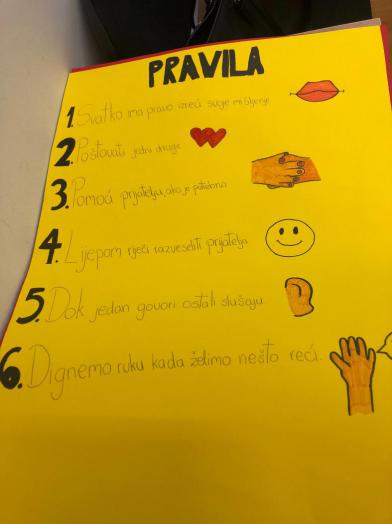 PRAVILA
1. Svatko ima pravo izreći svoje mišljenje
2. Poštovati jedni druge
3. Pomoći prijatelju, ako je potrebno
4. Lijepom riječi razveseliti prijatelja
5. Dok jedan govori ostali slušaju
6. Dignemo ruku kada želimo nešto reći.